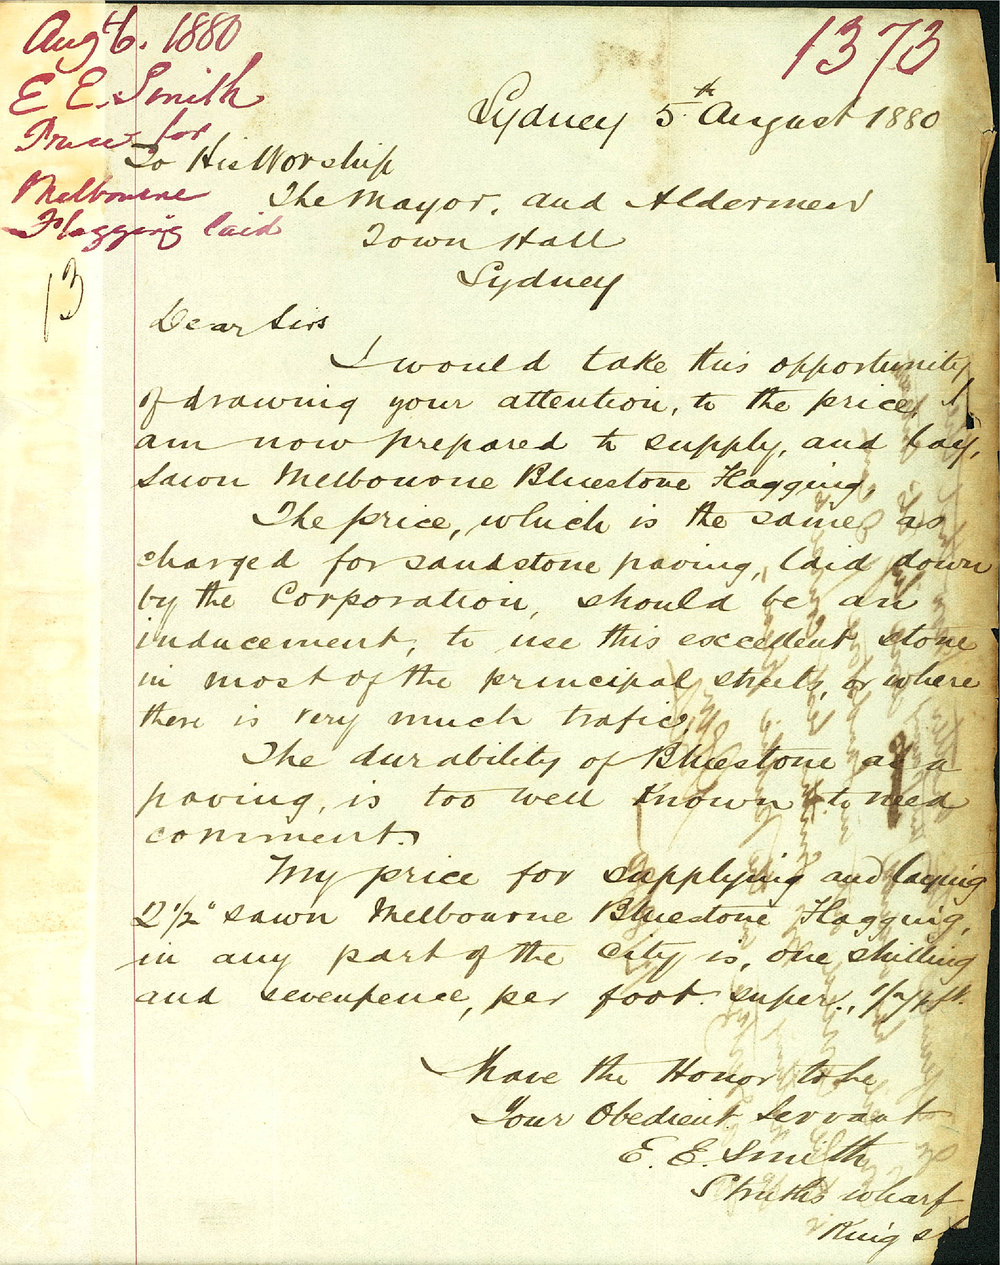 Aug 6. 1880
E E. Smith
Price for
Melbourne
Flagging laid
13
1373
Sydney 5th August 1880
To His Worship
The Mayor, and Aldermen
Town Hall
Sydney
Dear Sirs
I would take this opportunity
of drawing your attention, to the price, I
am now prepared to supply, and lay,
Sawn Melbourne Bluestone Flagging,
The price, which is the same as
charged for sandstone paving, laid down
by the Corporation, should be an
inducement, to use this excellent stone
in most of the principal streets, or where
there is very much trafic,
The durability of Bluestone as a
paving, is too well known to need
comment.
My price for supplying and laying
2 1/2" sawn Melbourne Bluestone Flagging,
in any part of the City is, one shilling
and sevenpence, per foot. super., 1/7 p ft.
Have the Honor to be
Your Obedient Servant
E. E. Smith
Struths wharf
King st